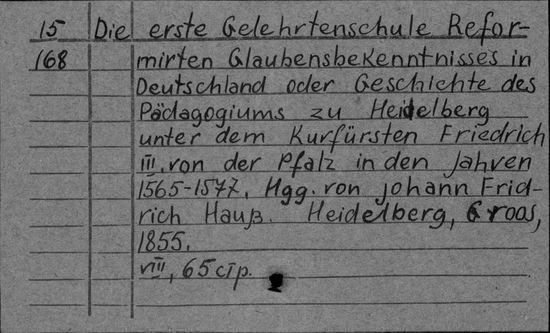 15 Die erste Gelehrtenschule Refor-
168 mirten Glaubensbekenntnisses in
Deutschland oder Geschichte des
Pädagogiums zu Heidelberg
unter dem Kurfürsten Friedrich
III. von der Pfalz in den Jahren
1565-1577. Hgg. von Johann Frid-
rich Hauß. Heidelberg, Groos,
1855.
VIII, 65 стр.